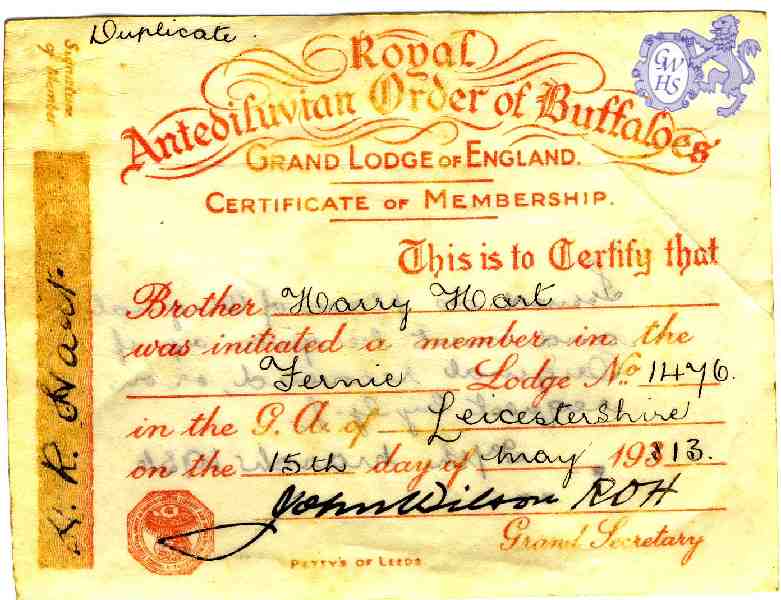 Duplicate.
Signature of Member
H. R. Hart.
GW HS
Royal
Antediluvian Order of Buffaloes
GRAND LODGE OF ENGLAND.
CERTIFICATE OF MEMBERSHIP.
This is to Certify that
Brother Harry Hart
was initiated a member in the
Fernie Lodge No. 1476.
in the G. A. of Leicestershire
on the 15th day of May, 193 13.
John Wilson ROH
Grand Secretary
PETTY'S OF LEEDS